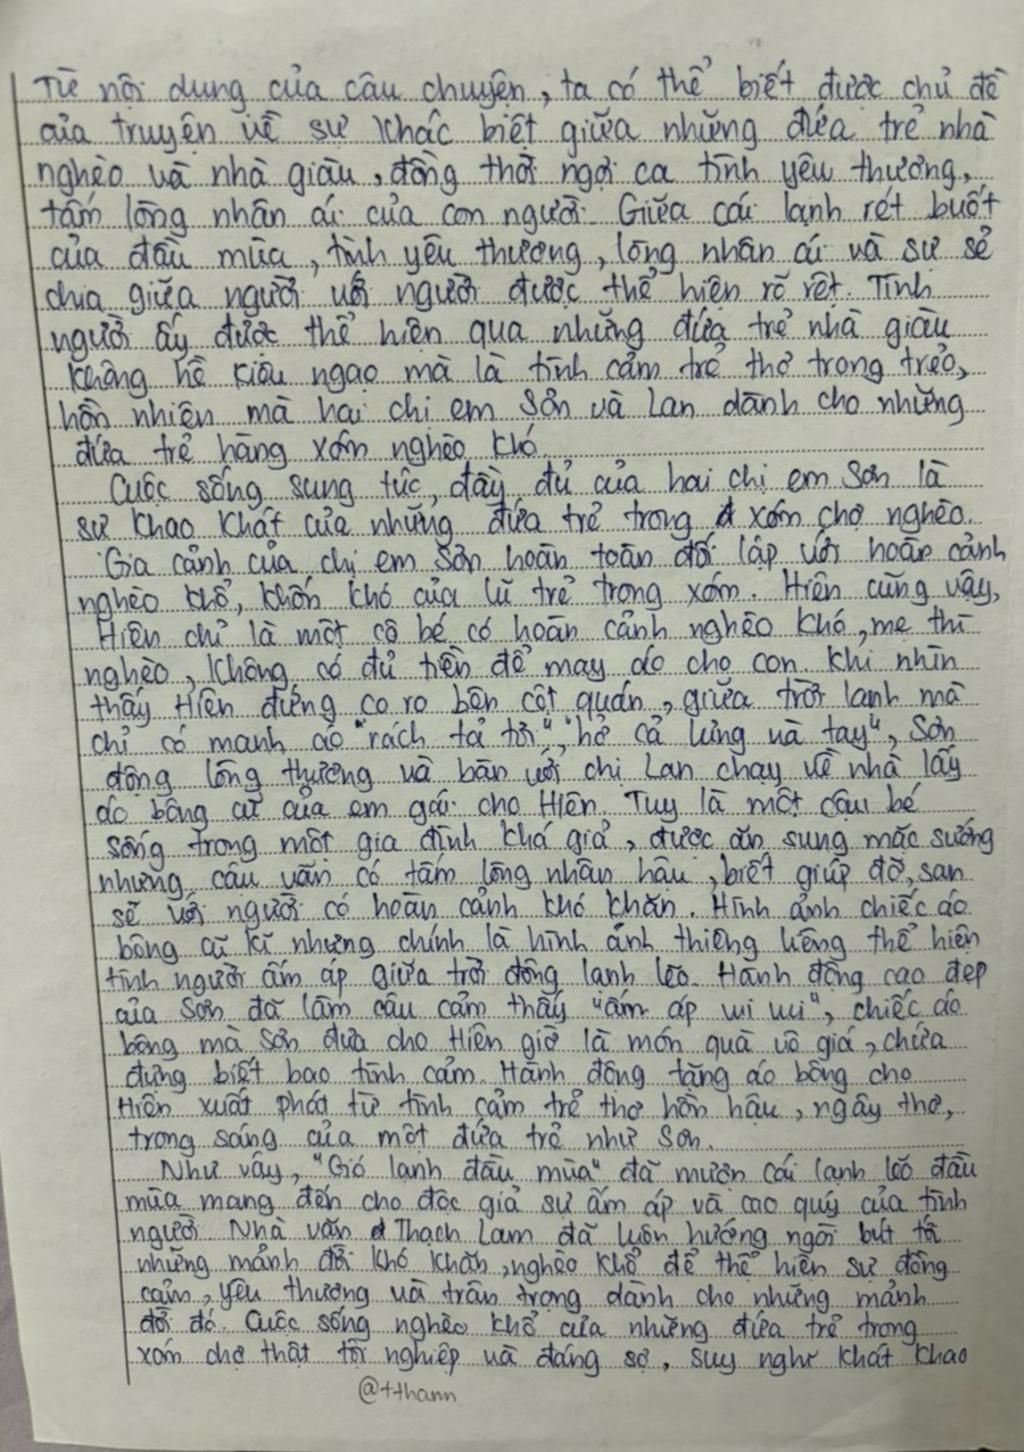 Từ nội dung của câu chuyện, ta có thể biết được chủ đề
của truyện về sự khác biệt giữa những đứa trẻ nhà
nghèo và nhà giàu, đồng thời ngợi ca tình yêu thương,
tấm lòng nhân ái của con người. Giữa cái lạnh rét buốt
của đầu mùa, tình yêu thương, lòng nhân ái và sự sẻ
chia giữa người với người được thể hiện rõ rệt. Tình
người ấy được thể hiện qua những đứa trẻ nhà giàu
không hề kiêu ngạo mà là tình cảm trẻ thơ trong trẻo,
hồn nhiên mà hai chị em Sơn và Lan dành cho những
đứa trẻ hàng xóm nghèo khó.
Cuộc sống sung túc, đầy đủ của hai chị em Sơn là
sự khao khát của những đứa trẻ trong xóm chợ nghèo.
Gia cảnh của chị em Sơn hoàn toàn đối lập với hoàn cảnh
nghèo khổ, khốn khó của lũ trẻ trong xóm. Hiên cũng vậy,
Hiên chỉ là một cô bé có hoàn cảnh nghèo khó, mẹ thì
nghèo, không có đủ tiền để may áo cho con. Khi nhìn
thấy Hiên đứng co ro bên cột quán, giữa trời lạnh mà
chỉ có manh áo "rách tả tơi", "hở cả lưng và tay", Sơn
động lòng thương và bàn với chị Lan chạy về nhà lấy
áo bông cũ của em gái cho Hiên. Tuy là một cậu bé
sống trong một gia đình khá giả, được ăn sung mặc sướng
nhưng cậu vẫn có tấm lòng nhân hậu, biết giúp đỡ, san
sẻ với người có hoàn cảnh khó khăn. Hình ảnh chiếc áo
bông cũ kĩ nhưng chính là hình ảnh thiêng liêng thể hiện
tình người ấm áp giữa trời đông lạnh lẽo. Hành động cao đẹp
của Sơn đã làm cậu cảm thấy "ấm áp vui vui", chiếc áo
bông mà Sơn đưa cho Hiên giờ là món quà vô giá, chứa
đựng biết bao tình cảm. Hành động tặng áo bông cho
Hiên xuất phát từ tình cảm trẻ thơ hồn hậu, ngây thơ,
trong sáng của một đứa trẻ như Sơn.
Như vậy, "Gió lạnh đầu mùa" đã mượn cái lạnh lẽo đầu
mùa mang đến cho độc giả sự ấm áp và cao quý của tình
người. Nhà văn Thạch Lam đã luôn hướng ngòi bút tới
những mảnh đời khó khăn, nghèo khổ để thể hiện sự đồng
cảm, yêu thương và trân trọng dành cho những mảnh
đời đó. Cuộc sống nghèo khổ của những đứa trẻ trong
xóm chợ thật tội nghiệp và đáng sợ, suy nghĩ khát khao
@tthann